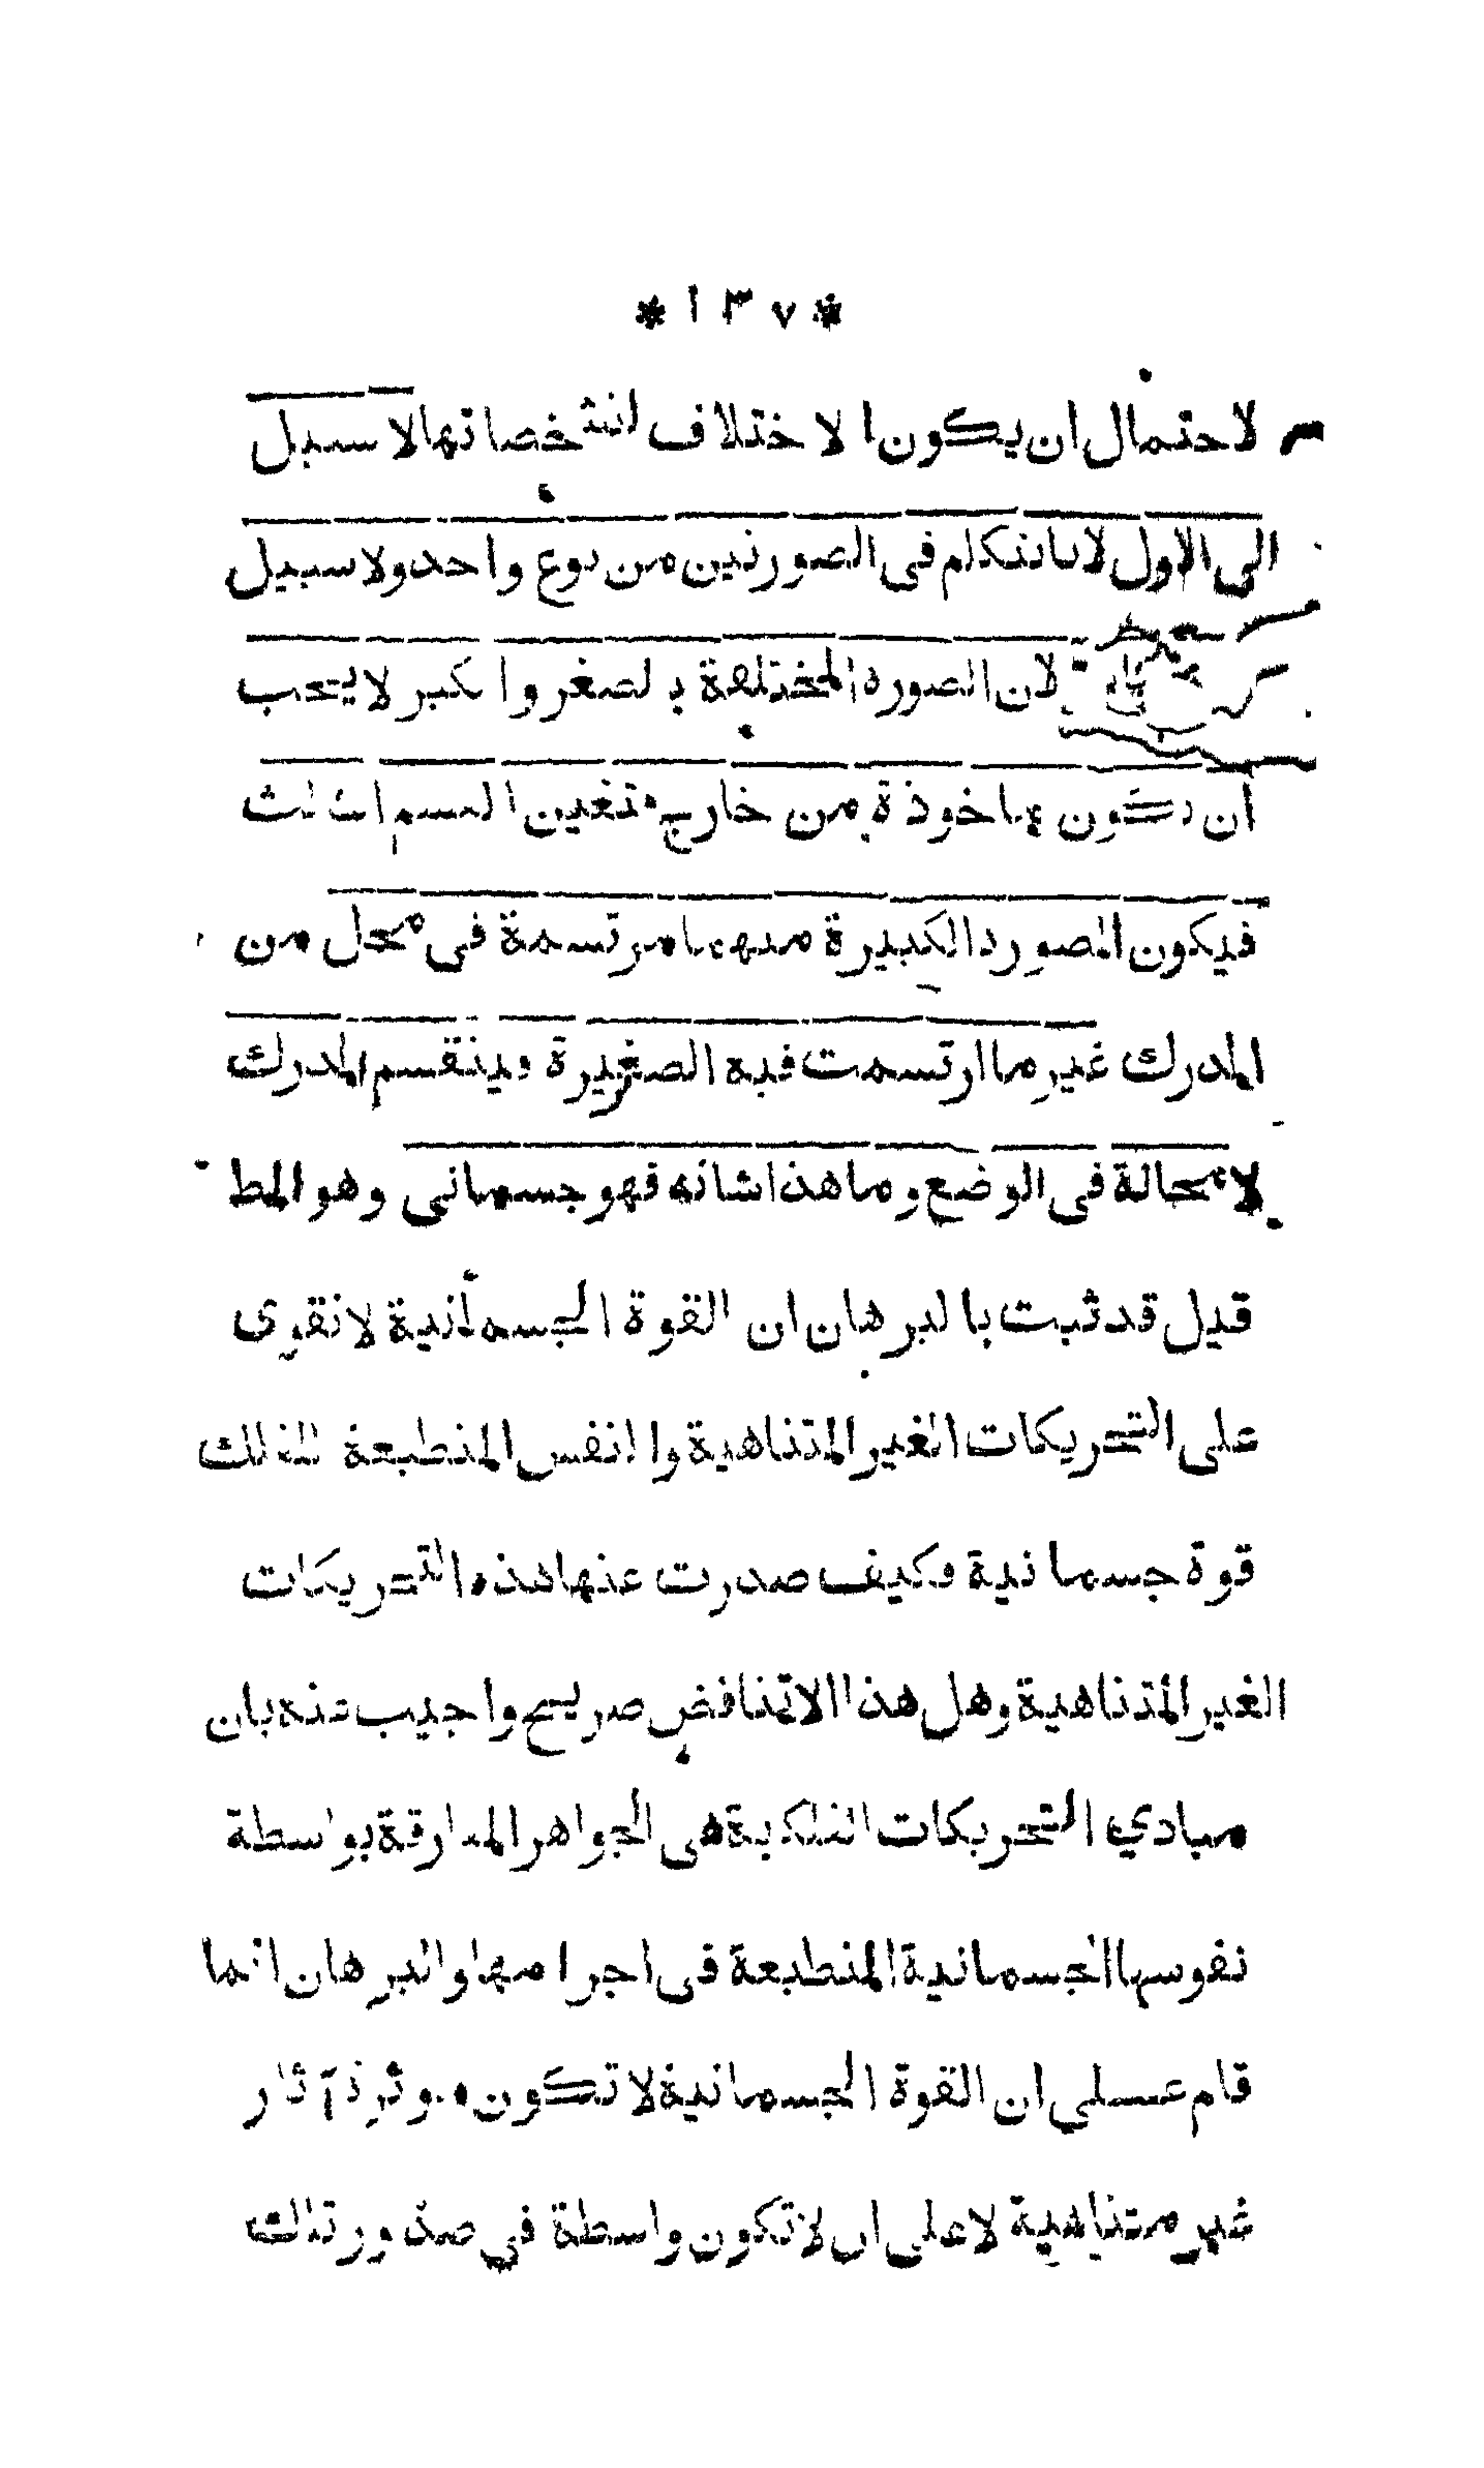 * ١٣٧ *
لاحتمال ان يكون الاختلاف لتشخصاتها لا سبيل
الى الاول لانا نتكلم فى الصورتين من نوع واحد ولا سبيل
لان الصورة المختلفة بالصغر والكبر لا يجب
ان تكون ماخوذة من خارج فتعين القسم الثالث
فيكون الصورة الكبيرة منهما مرتسمة فى محل من
المدرك غير ما ارتسمت فيه الصغيرة وينقسم المدرك
لا محالة فى الوضع وما هذا شانه فهو جسمانى وهو المط
قيل قد ثبت بالبرهان ان القوة الجسمانية لا تقوى
على التحريكات الغير المتناهية والنفس المنطبعة للفلك
قوة جسمانية فكيف صدرت عنها هذه التحريكات
الغير المتناهية وهل هذا الا تناقض صريح واجيب عنه بان
مبادي التحريكات الفلكية هى الجواهر المفارقة بواسطة
نفوسها الجسمانية المنطبعة فى اجرامها والبرهان انما
قام على ان القوة الجسمانية لا تكون موثرة آثار
غير متناهية لا على ان لا تكون واسطة في صدور تلك